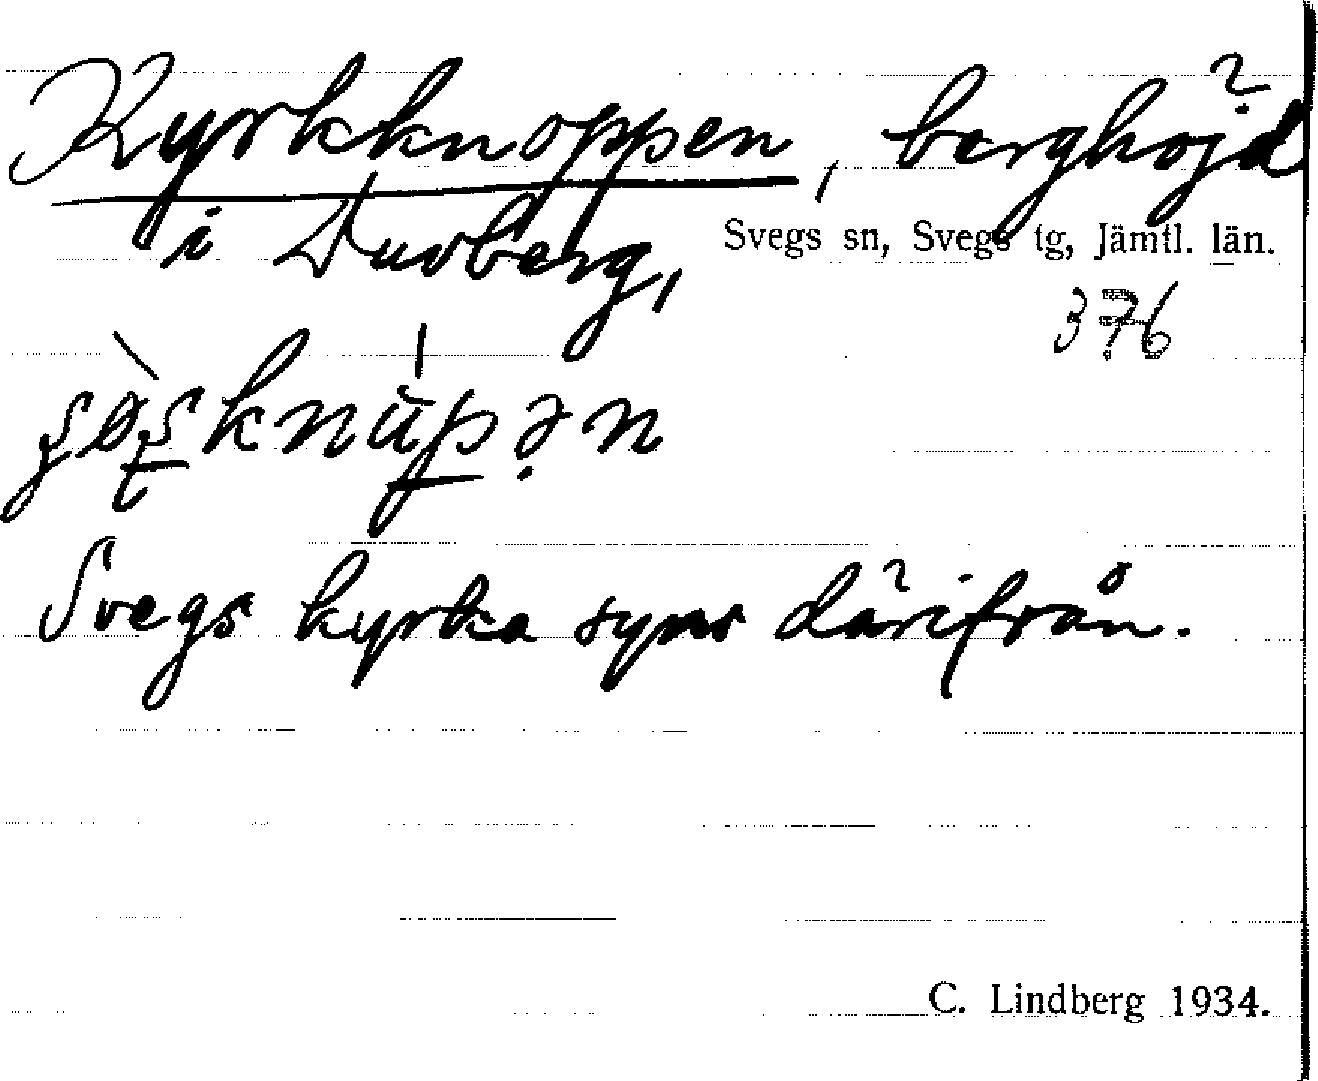 Kyrkknoppen, berghöjd
i Duvberg,
Svegs sn, Svegs tg, Jämtl. län.
376
Svegs kyrka syns därifrån.
C. Lindberg 1934.